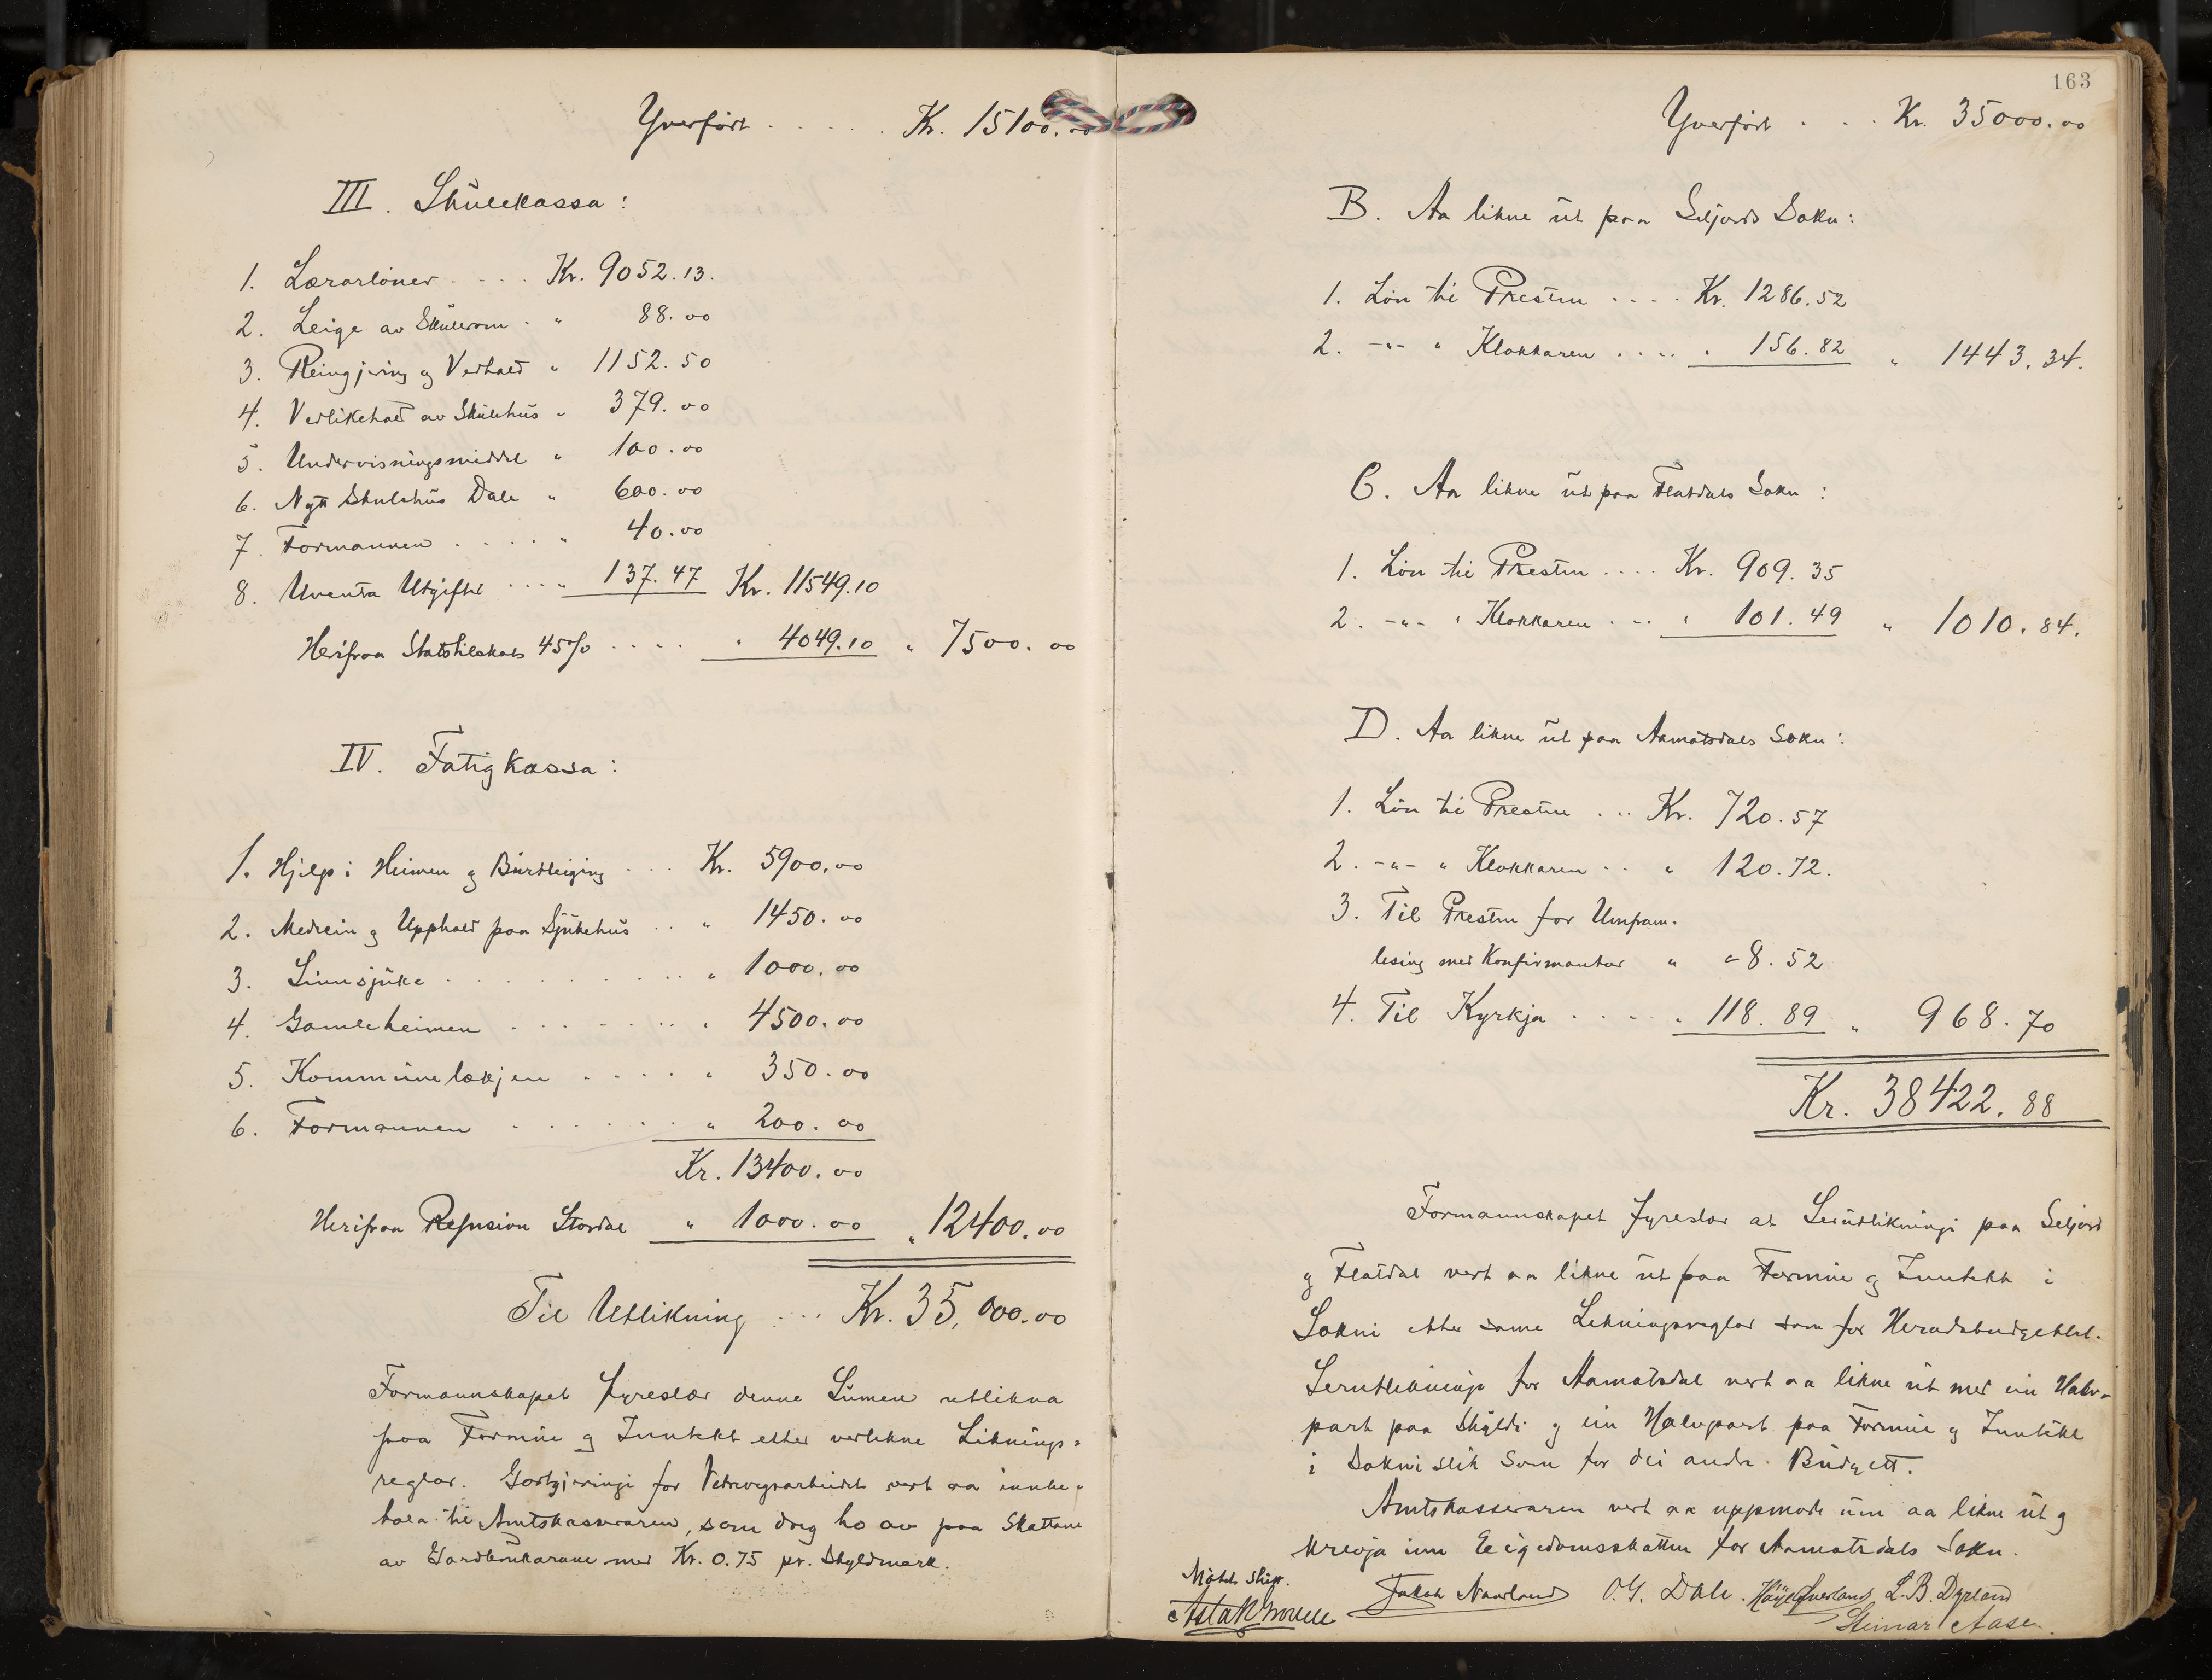 Yverført . . . . . . Kr. 15100.00
III. Skulekassa:
1. Lærarløner . . . . Kr. 9052.13.
2. Leige av Skulerom . " 88.00
3. Reingjering og Vedhald " 1152.50
4. Vedlikehald av Skulehus " 379.00
5. Undervisningsmiddel " 100.00
6. Nytt Skulehus Dale " 600.00
7. Formannen . . . . . " 40.00
8. Uventa Utgifter . . . . " 137.47 Kr. 11549.10
Herifraa Statstilskot 45% . . . . " 4049.10 " 7500.00
IV. Fatigkassa:
1. Hjelp i Heimen og Burtleiging . . . Kr. 5900.00
2. Medicin og Upphald paa Sjukehus . . " 1450.00
3. Sinnsjuke . . . . . . . . . " 1000.00
4. Gamleheimen . . . . . . . . " 4500.00
5. Kommunelækjen . . . . . " 350.00
6. Formannen . . . . . . " 200.00
Kr. 13400.00
Herifraa Refusion Stordal " 1000.00 " 12400.00
Til Utlikning . . . Kr. 35,000.00
Formannskapet fyreslær denne Sumen utlikna
paa Formue og Inntekt etter verlikne Liknings-
reglar. Godtgjeringi for Vedvegsarbeidet vert aa innbe-
tala til Amtskasseraren, som dreg ho av paa Skattane
av Gardbrukarane med Kr. 0.75 pr. Skyldmark.
163
Yverført . . . Kr. 35000.00
B. Aa likne ut paa Seljords Sokn:
1. Løn til Presten . . . . Kr. 1286.52
2. -"- " Klokkaren . . . . " 156.82 " 1443.34.
C. Aa likne ut paa Flatdals Sokn:
1. Løn til Presten . . . . Kr. 909.35
2. -"- " Klokkaren . . . " 101.49 " 1010.84.
D. Aa likne ut paa Aamotsdals Sokn:
1. Løn til Presten . . . Kr. 720.57
2. -"- " Klokkaren . . " 120.72.
3. Til Presten for Umfram-
lesing med Konfirmantar " " 8.52
4. Til Kyrkja . . . . . " 118.89 " 968.70
Kr. 38422.88
Formannskapet fyreslær at Serutlikningi paa Seljord
og Flatdal vert aa likne ut paa Formue og Inntekt i
Sokni etter same Likningsreglar som for Heradsbudgettet.
Serutlikningi for Aamotsdal vert aa likne ut med ein Halv-
part paa Skyldi og ein Halvpart paa Formue og Inntekt
i Sokni slik som for dei andre Budgett.
Amtskasseraren vert aa uppmode um aa likne ut og
krevja inn Eigedomsskatten for Aamotsdals Sokn.
Møtet slutt.
Jakob Naurland O. G. Dale. L. B. Dyrland
Steinar Aase.